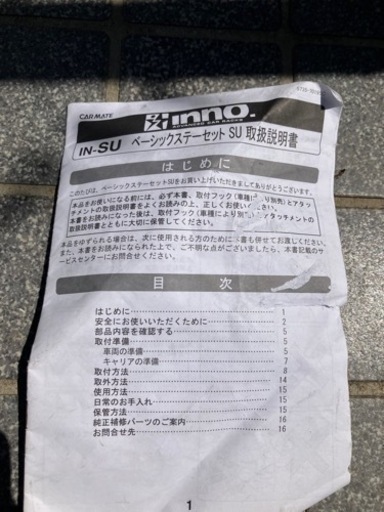 CAR・MATE
inno.
ADVANCED CAR RACKS
IN-SU ベーシックステーセットSU 取扱説明書
はじめに
このたびは、ベーシックステーセットSUをお買い上げいただきましてありがとうございます。
本品をお使いになる前には、必ず本書、取付フック(車種により別売)とアタッ
チメントの取扱説明書をよくお読みの上、正しくお使いください。
本書をお読みになった後は、取付フック(車種により別売)、各アタッチメントの
取扱説明書とともに大切に保管してください。
本品をゆずられる場合は、次に使用される方のために本書も併せてお渡しください。
また、お読みになられた上で、ご不明な点がございましたら、本書記載のサ
ービスセンターにお問合せください。
目 次
はじめに 1
安全にお使いいただくために 2
部品内容を確認する 5
取付準備 5
車両の準備 5
キャリアの準備 7
取付方法 8
取外方法 14
使用方法 15
日常のお手入れ 15
保管方法 15
純正補修パーツのご案内 16
お問合せ先 16
1